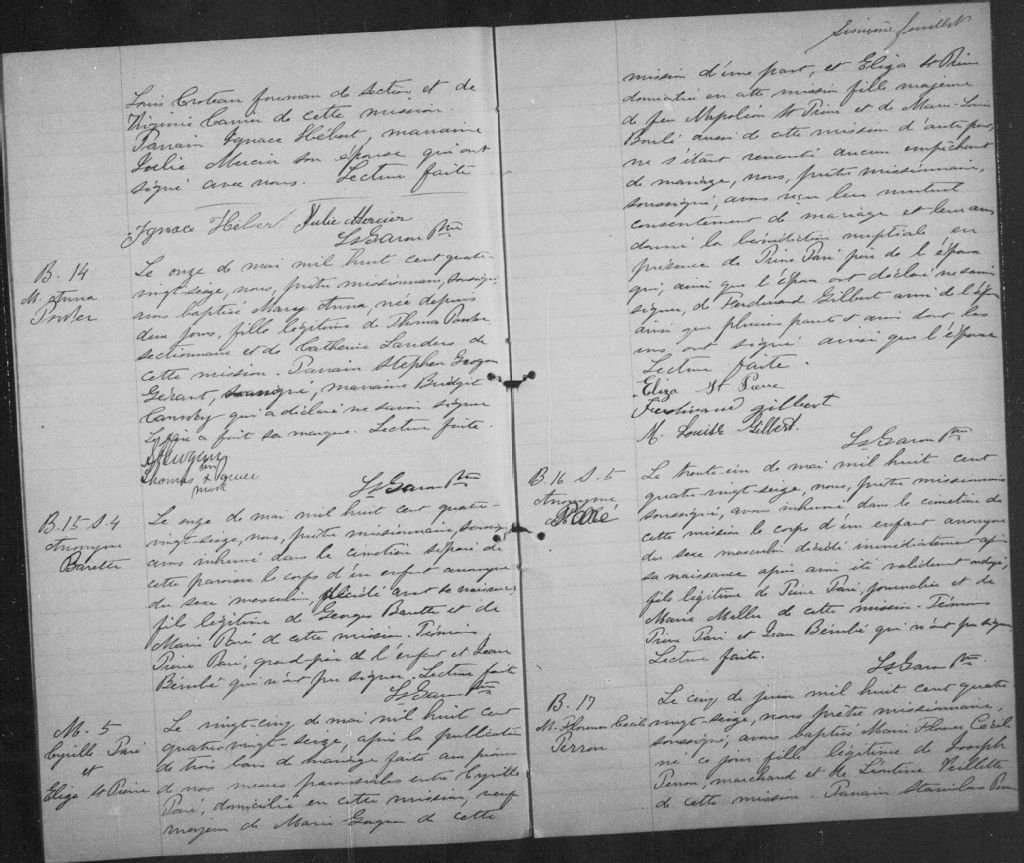 Louis Croteau foreman de section et de
Virginie Carrier de cette mission.
Parrain Ignace Hébert, marraine
Julie Mercier son épouse qui ont
signé avec nous. Lecture faite
Ignace Héber Julie Mercier
Ls Garon Ptre
B. 14
M. Anna
Le onze de mai mil huit cent quatre-
vingt-seize, nous, prêtre missionnaire, soussigné,
avons baptisé Mary Anna, née depuis
deux jours, fille légitime de Thomas
sectionnaire et de Catherine Landers de
cette mission. Parrain Stephen
marraine Bridget
qui a déclaré ne savoir signer
Le père a fait sa marque. Lecture faite.
Thomas x
mark
Ls Garon Ptre
B. 15 S. 4
Anonyme
Barette
Le onze de mai mil huit cent quatre-
vingt-seize, nous, prêtre missionnaire, soussigné
avons inhumé dans le cimetière séparé de
cette paroisse le corps d'un enfant anonyme
du sexe masculin, décédé avant sa naissance
fils légitime de Georges Barette et de
Marie Paré de cette mission. Témoins
Pierre Paré, grand-père de l'enfant et Jean
Bérubé qui n'ont pu signer. Lecture faite
Ls Garon Ptre
M. 5
Cyrille Paré
et
Eliza St Pierre
Le vingt-cinq de mai mil huit cent
quatre-vingt-seize, après la publication
de trois bans de mariage faite au prône
de nos messes paroissiales entre Cyrille
Paré, domicilié en cette mission, veuf
majeur de Marie Gagnon de cette
Sixième feuillet
mission d'une part, et Eliza St Pierre
domiciliée en cette mission fille majeure
de feu Napoléon St Pierre et de Marie-Louise
Boulé aussi de cette mission d'autre part,
ne s'étant rencontré aucun empêchement
de mariage, nous, prêtre missionnaire,
soussigné, avons reçu leur mutuel
consentement de mariage et leur avons
donné la bénédiction nuptiale en
présence de Pierre Paré père de l'époux
qui, ainsi que l'époux ont déclaré ne savoir
signer, de Ferdinand Gilbert ami de l'époux
ainsi que plusieurs parents et amis dont les
uns ont signé ainsi que l'épouse
Lecture faite.
Eliza St Pierre
Ferdinand Gilbert
M. Louise Gilbert.
Ls Garon Ptre
B. 16 S. 5
Anonyme
Paré
Le trente-un de mai mil huit cent
quatre-vingt-seize, nous, prêtre missionnaire
soussigné, avons inhumé dans le cimetière de
cette mission le corps d'un enfant anonyme
du sexe masculin décédé immédiatement après
sa naissance après avoir été validement ondoyé,
fils légitime de Pierre Paré, journalier et de
Marie Miller de cette mission. Témoins
Pierre Paré et Jean Bérubé qui n'ont pu signer
Lecture faite.
Ls Garon Ptre
B. 17
M. Florence Cécile
Perron
Le cinq de juin mil huit cent quatre-
vingt-seize, nous prêtre missionnaire,
soussigné, avons baptisé Marie Florence Cécile
née ce jour fille légitime de Joseph
Perron, marchand et de Léontine Veillette
de cette mission. Parrain Stanislas Perron